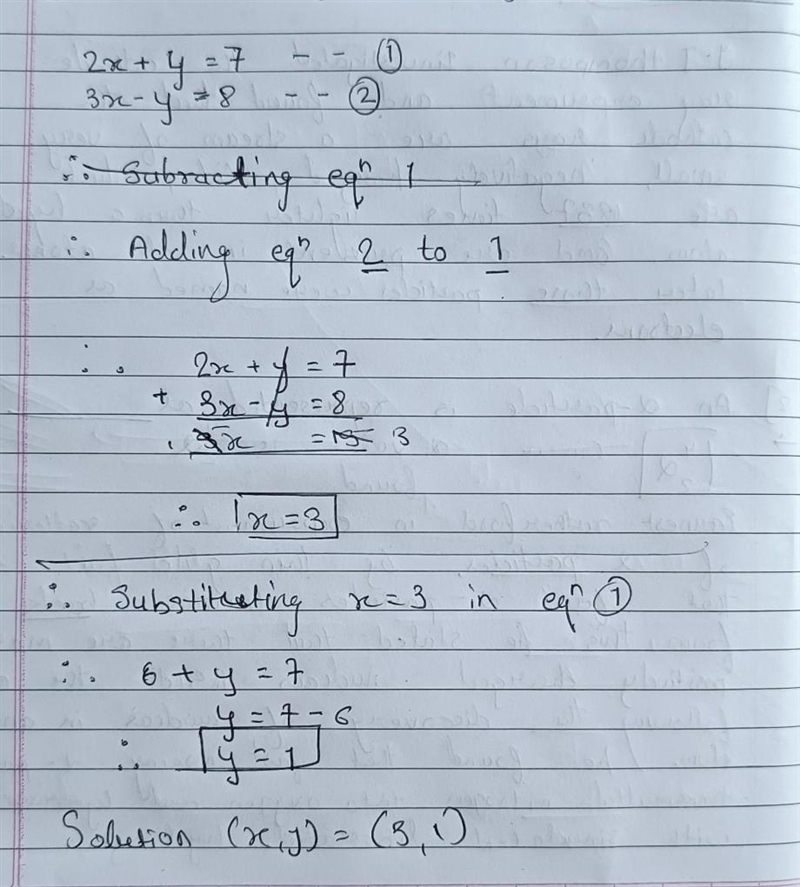 2x + y = 7 - - ①
3x - y = 8 - - ②
∴ Subracting eqⁿ 1
∴ Adding eqⁿ 2 to 1
∴ 2x + y = 7
+ 3x - y = 8
5x = 15 3
∴ x = 3
∴ Substituting x = 3 in eqⁿ ①
∴ 6 + y = 7
y = 7 - 6
∴ y = 1
Solution (x, y) = (3, 1)